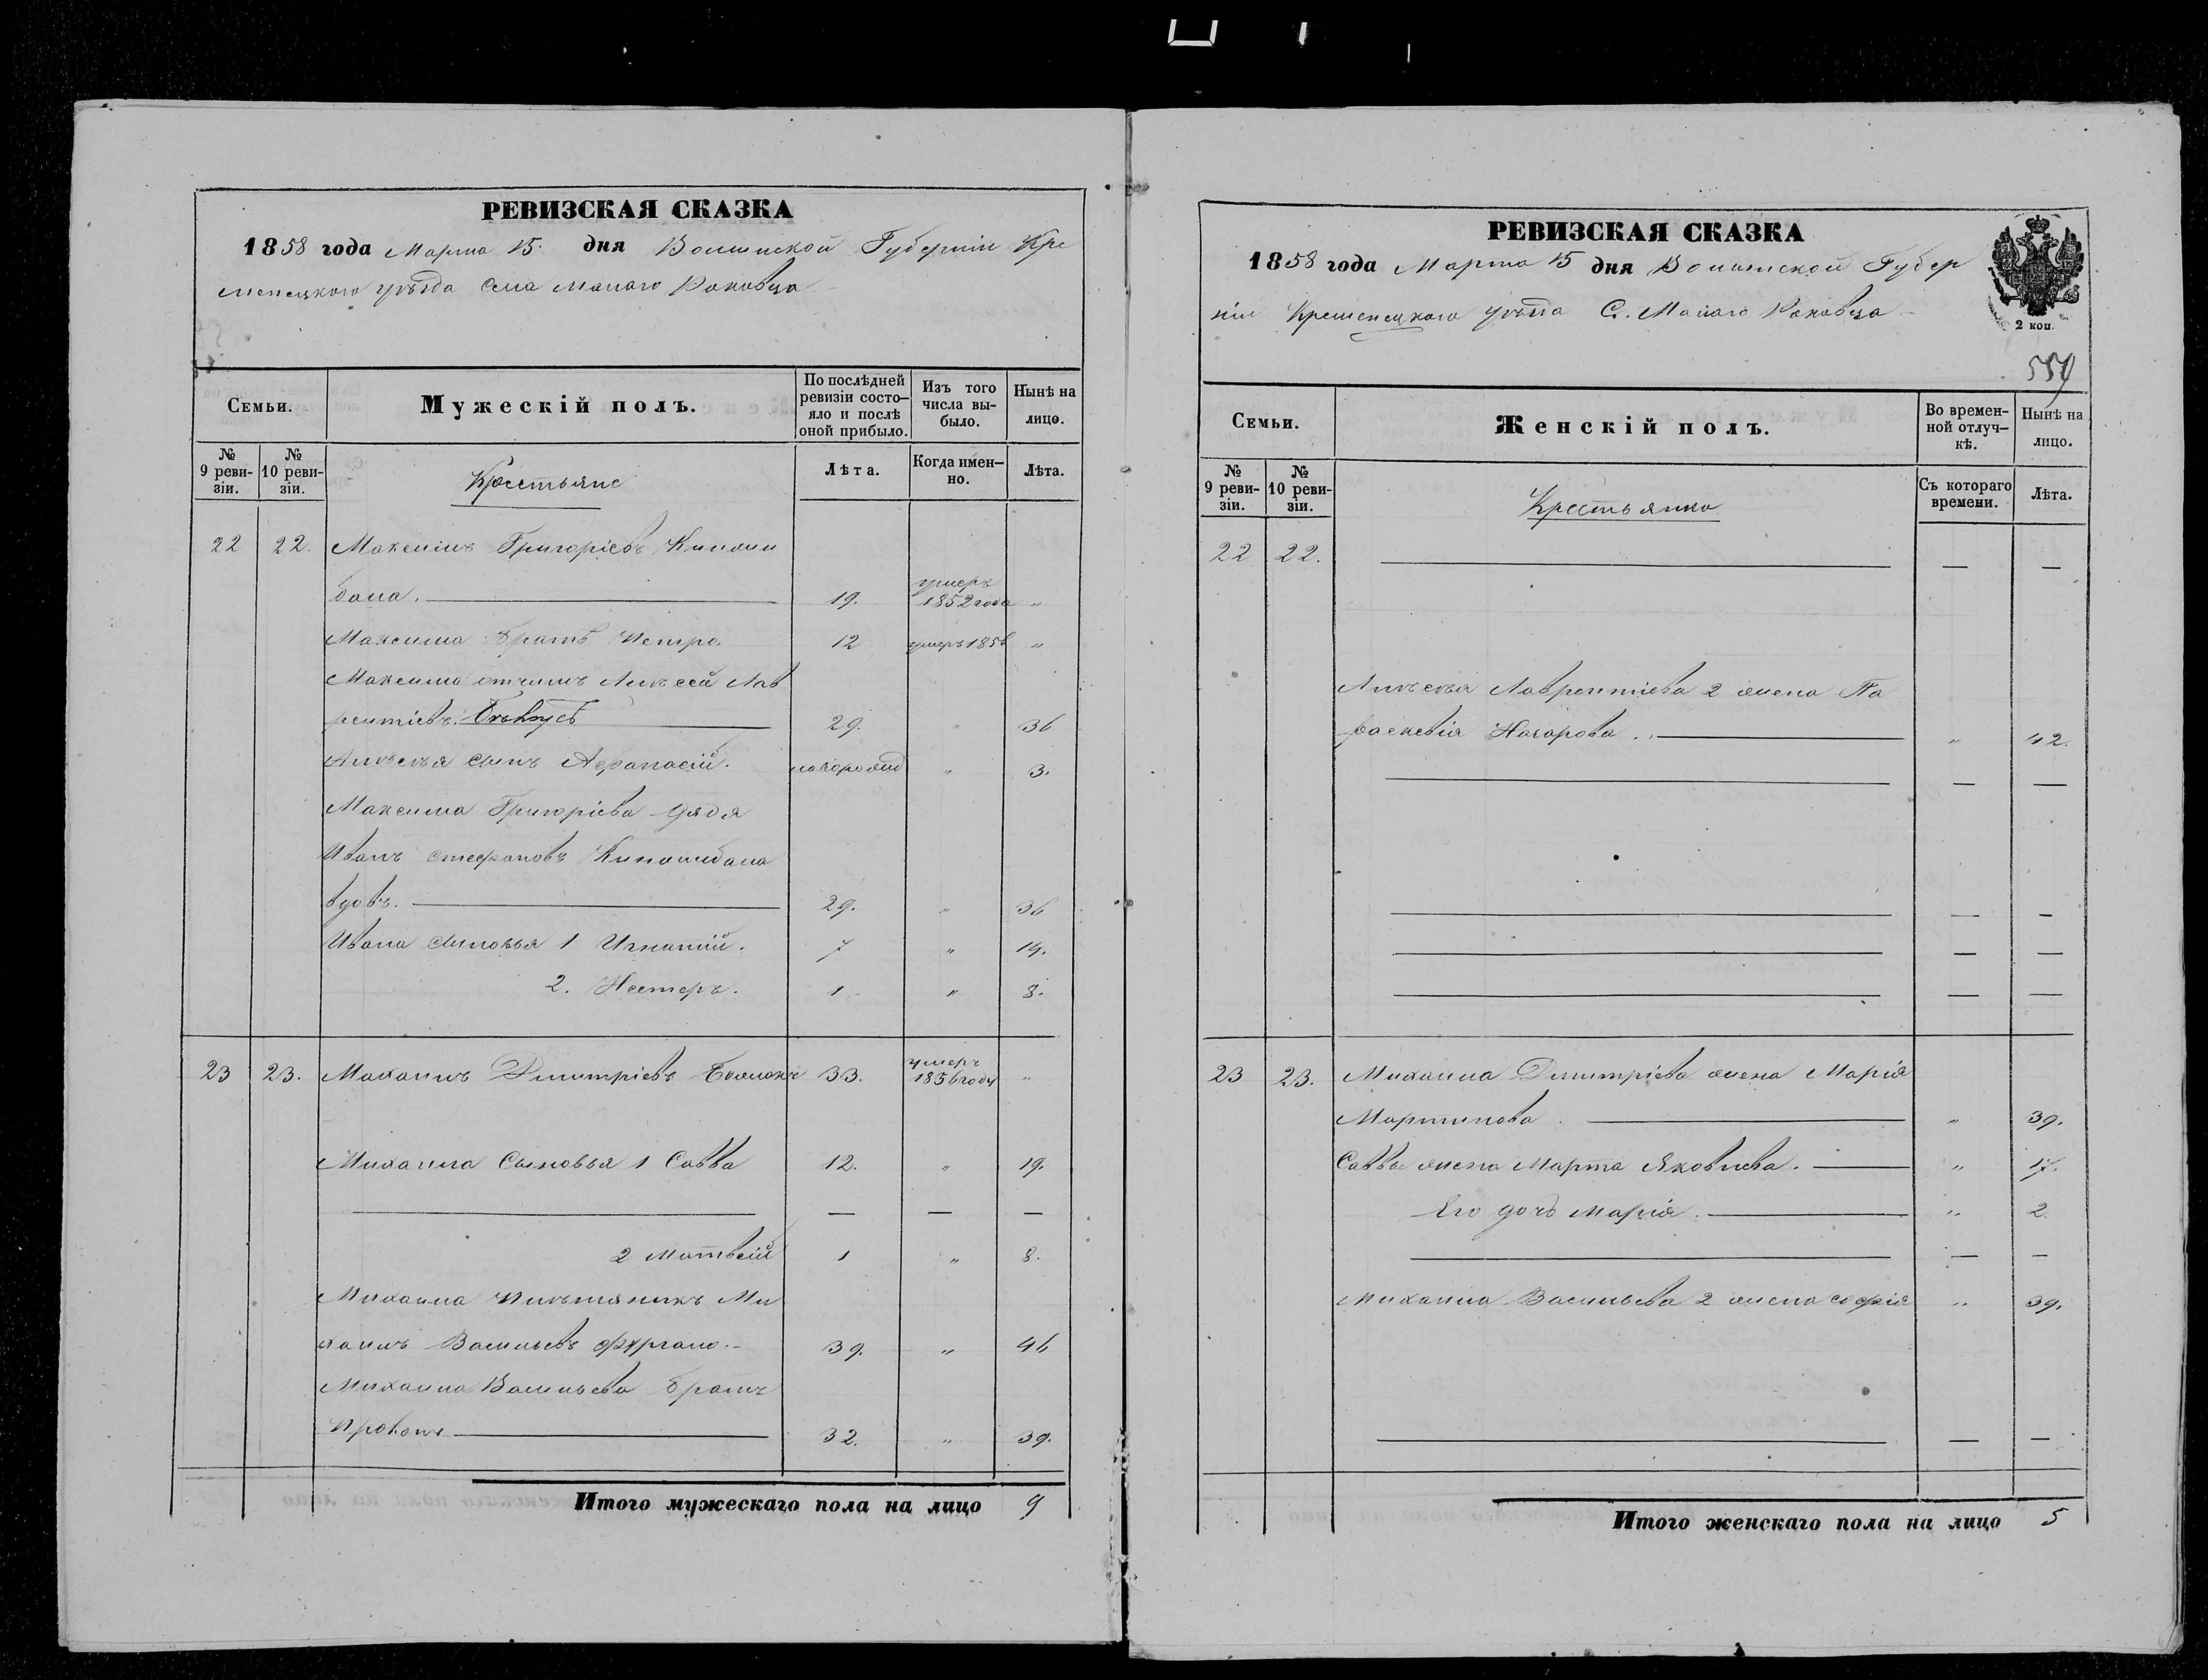 РЕВИЗСКАЯ СКАЗКА
1858 года Марта 15 дня Волынской Губернии Кре
менецкого уѣзда Села Малаго Раковца
Семьи.
Мужескій полъ.
По послѣдней ревизіи состояло и послѣ оной прибыло.
Изъ того числа выбыло.
Нынѣ на лицо.
№ 9 ревизіи.
№ 10 ревизіи.
Крестьяне
Лѣта.
Когда именно.
Лѣта.
22 22. Максимъ Григоріевъ
19. умеръ 1852 года "
Максима братъ Петро. 12 умеръ 1856 "
Максима отчимъ Алексѣй Лав
рентіевъ 29. " 36
Алексѣя сынъ Афанасій. новорожд " 3.
Максима Григоріева дядя
Иванъ Стефановъ
вдовъ. 29. " 36
Ивана сыновья 1 Игнатій. 7 " 14.
2. Нестеръ. 1 " 8.
23 23. Михаилъ Дмитріевъ 33. умеръ 1856 году "
Михаила Сыновья 1 Савва 12. " 19.
— — —
2 Матвѣй 1 " 8.
Михаила племяникъ Ми
хаилъ Васильевъ 39. " 46
Михаила Васильева братъ
Прокопъ 32. " 39.
Итого мужескаго пола на лицо 9
РЕВИЗСКАЯ СКАЗКА
1858 года Марта 15 дня Волынской Губер
ніи Кременецкого уѣзда С. Малаго Раковца
2 коп.
559
Семьи.
Женскій полъ.
Во временной отлучкѣ.
Нынѣ на лицо.
№ 9 ревизіи.
№ 10 ревизіи.
Крестьянки
Съ котораго времени.
Лѣта.
22 22. — —
Алексѣя Лаврентіева 2 жена Па
раскевія Назарова. " 42.
— —
— —
— —
— —
23 23. Михаила Дмитріева жена Марія
Мартинова. " 39.
Саввы жена Марта Яковлева. " 17.
Его дочь Марія. " 2
— —
Михаила Васильева 2 жена Софія " 39.
— —
Итого женскаго пола на лицо 5